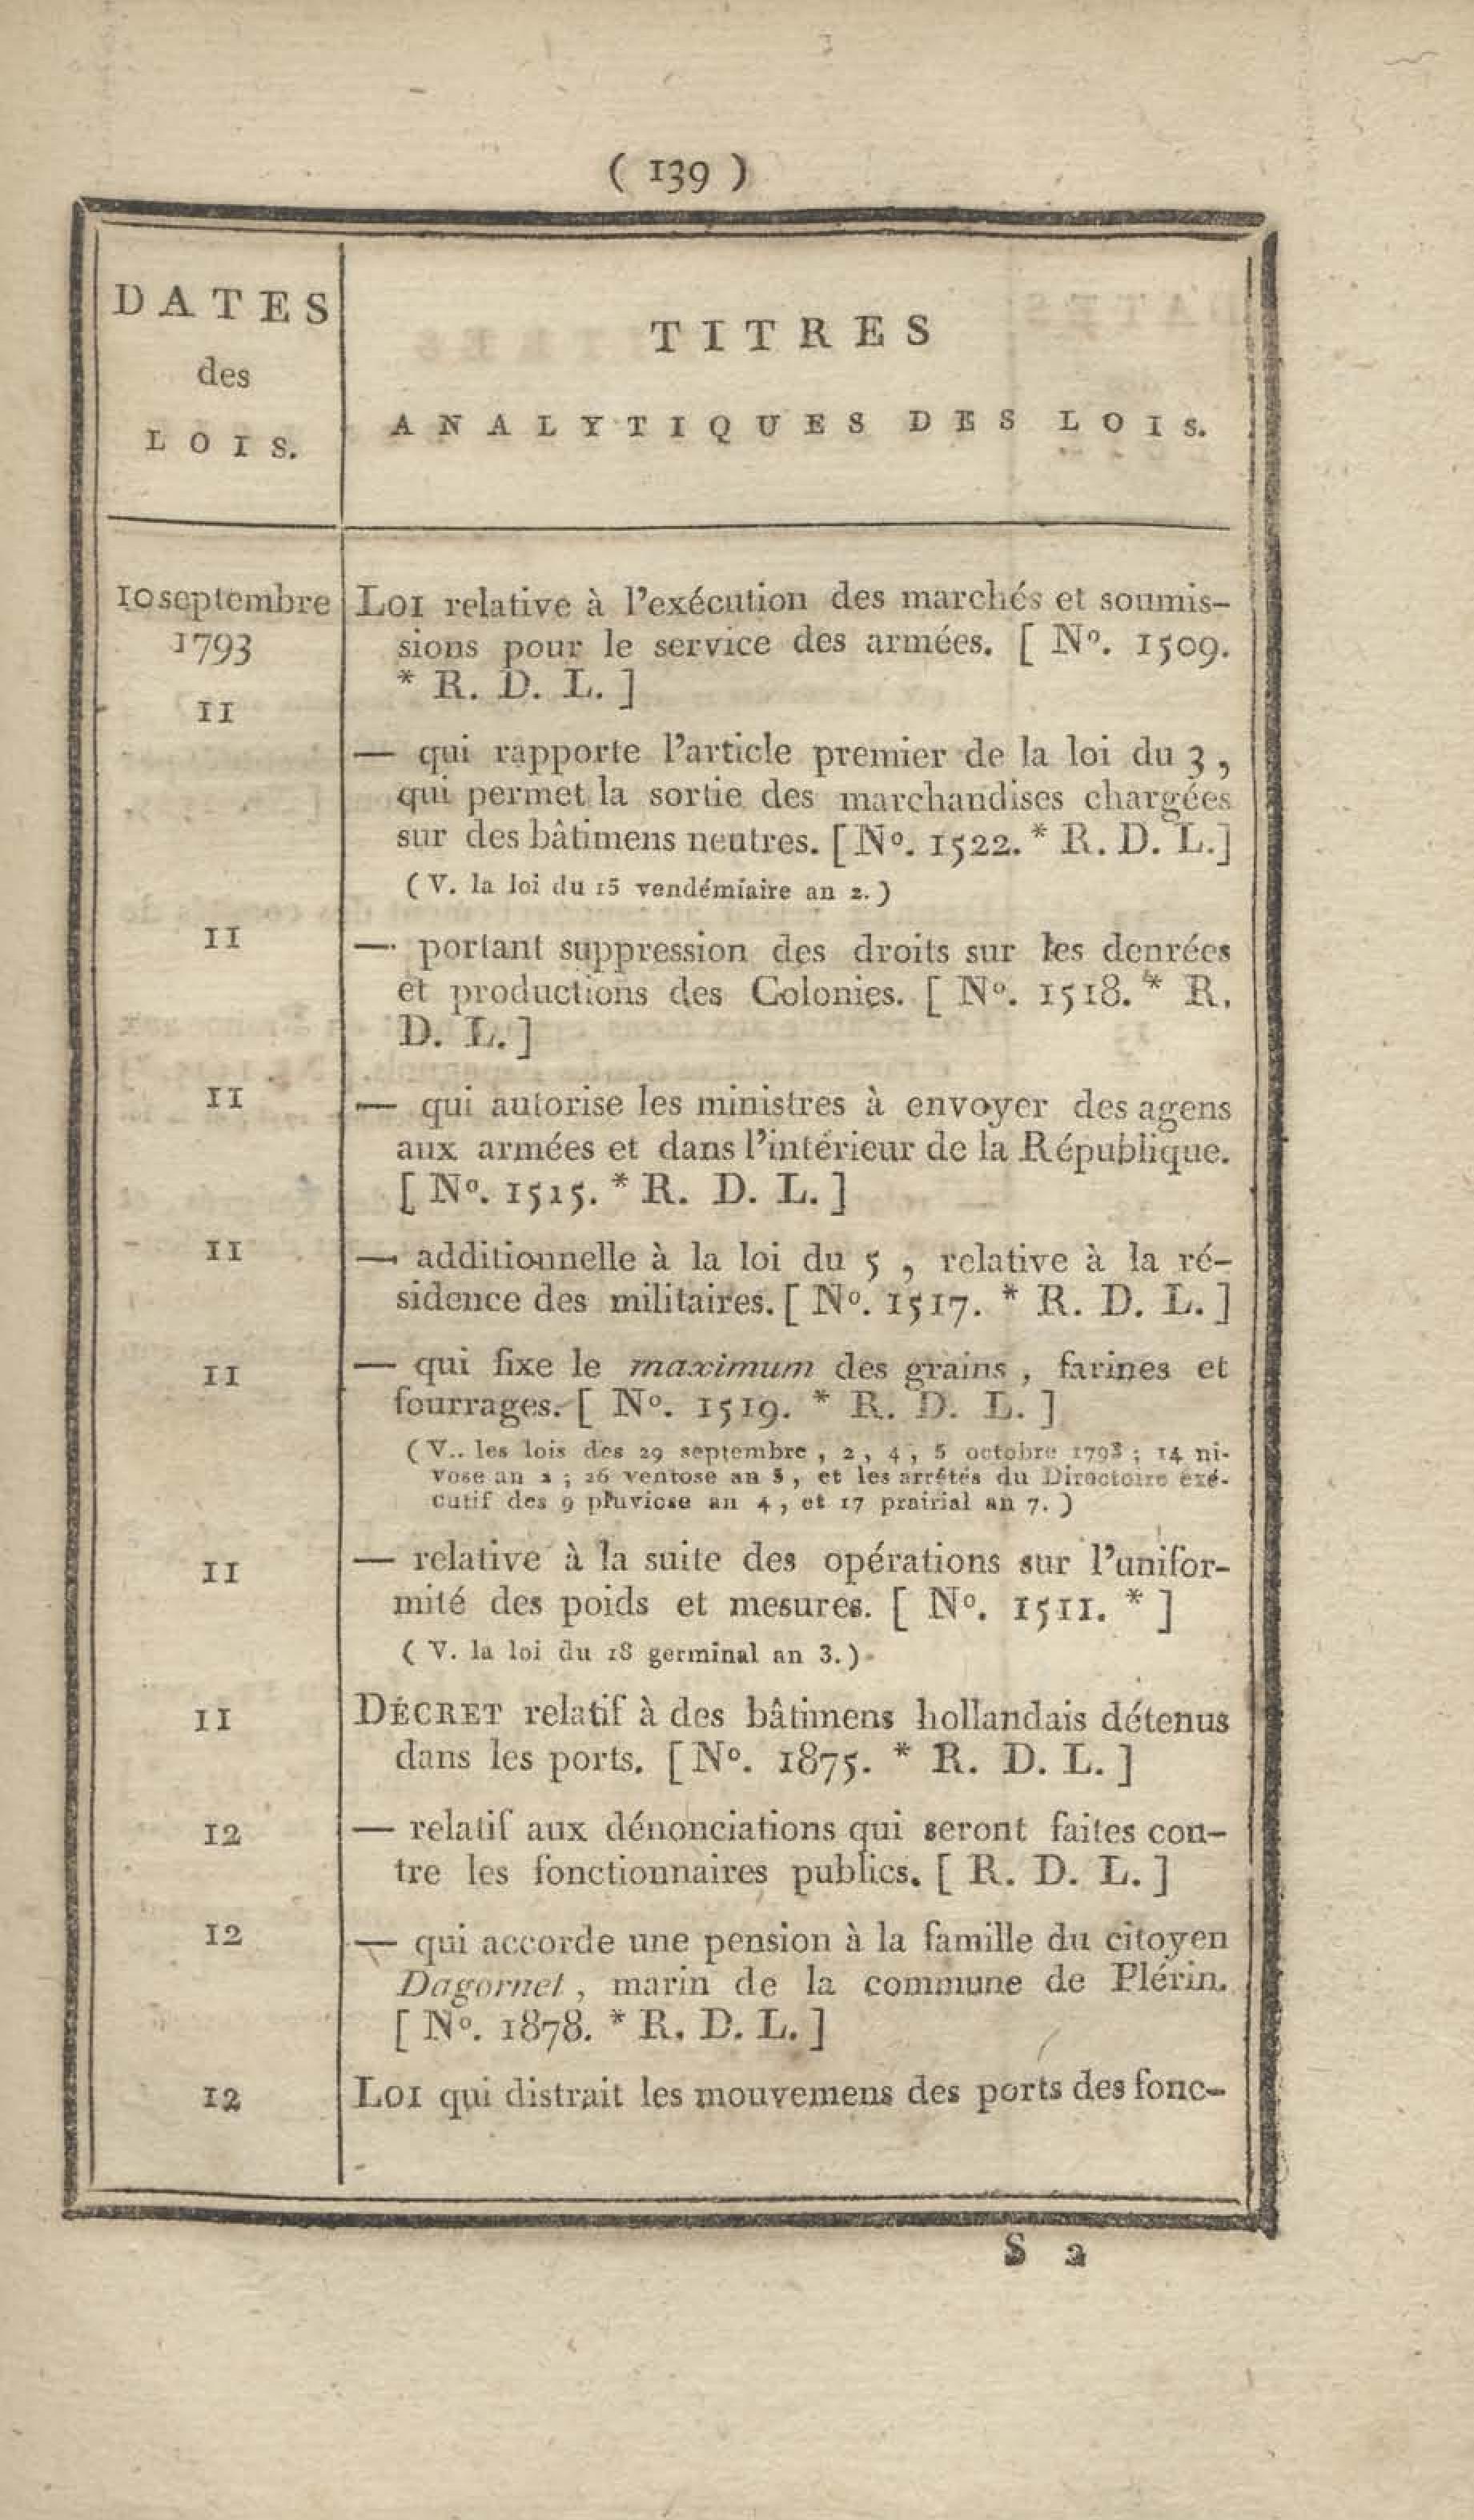 ( 139 )
DATES
des
LOIS.
TITRES
ANALYTIQUES DES LOIS.
10 septembre
1793
LOI relative à l'exécution des marchés et soumis-
sions pour le service des armées. [ Nº. 1509.
* R. D. L. ]
11
— qui rapporte l'article premier de la loi du 3 ,
qui permet la sortie des marchandises chargées
sur des bâtimens neutres. [ Nº. 1522. * R. D. L.]
( V. la loi du 15 vendémiaire an 2. )
11
— portant suppression des droits sur les denrées
et productions des Colonies. [ Nº. 1518. * R.
D. L. ]
11
— qui autorise les ministres à envoyer des agens
aux armées et dans l'intérieur de la République.
[ Nº. 1515. * R. D. L. ]
11
— additionnelle à la loi du 5 , relative à la ré-
sidence des militaires. [ Nº. 1517. * R. D. L. ]
11
— qui fixe le maximum des grains , farines et
fourrages. [ Nº. 1519. * R. D. L. ]
( V.. les lois des 29 septembre , 2 , 4 , 5 octobre 1793 ; 14 ni-
vose an 2 ; 26 ventose an 5 , et les arrêtés du Directoire exé-
cutif des 9 pluviose an 4 , et 17 prairial an 7. )
11
— relative à la suite des opérations sur l'unifor-
mité des poids et mesures. [ Nº. 1511. * ]
( V. la loi du 18 germinal an 3. )
11
DÉCRET relatif à des bâtimens hollandais détenus
dans les ports. [ Nº. 1875. * R. D. L. ]
12
— relatif aux dénonciations qui seront faites con-
tre les fonctionnaires publics. [ R. D. L. ]
12
— qui accorde une pension à la famille du citoyen
Dagornet , marin de la commune de Plérin.
[ Nº. 1878. * R. D. L. ]
12
LOI qui distrait les mouvemens des ports des fonc-
S 2